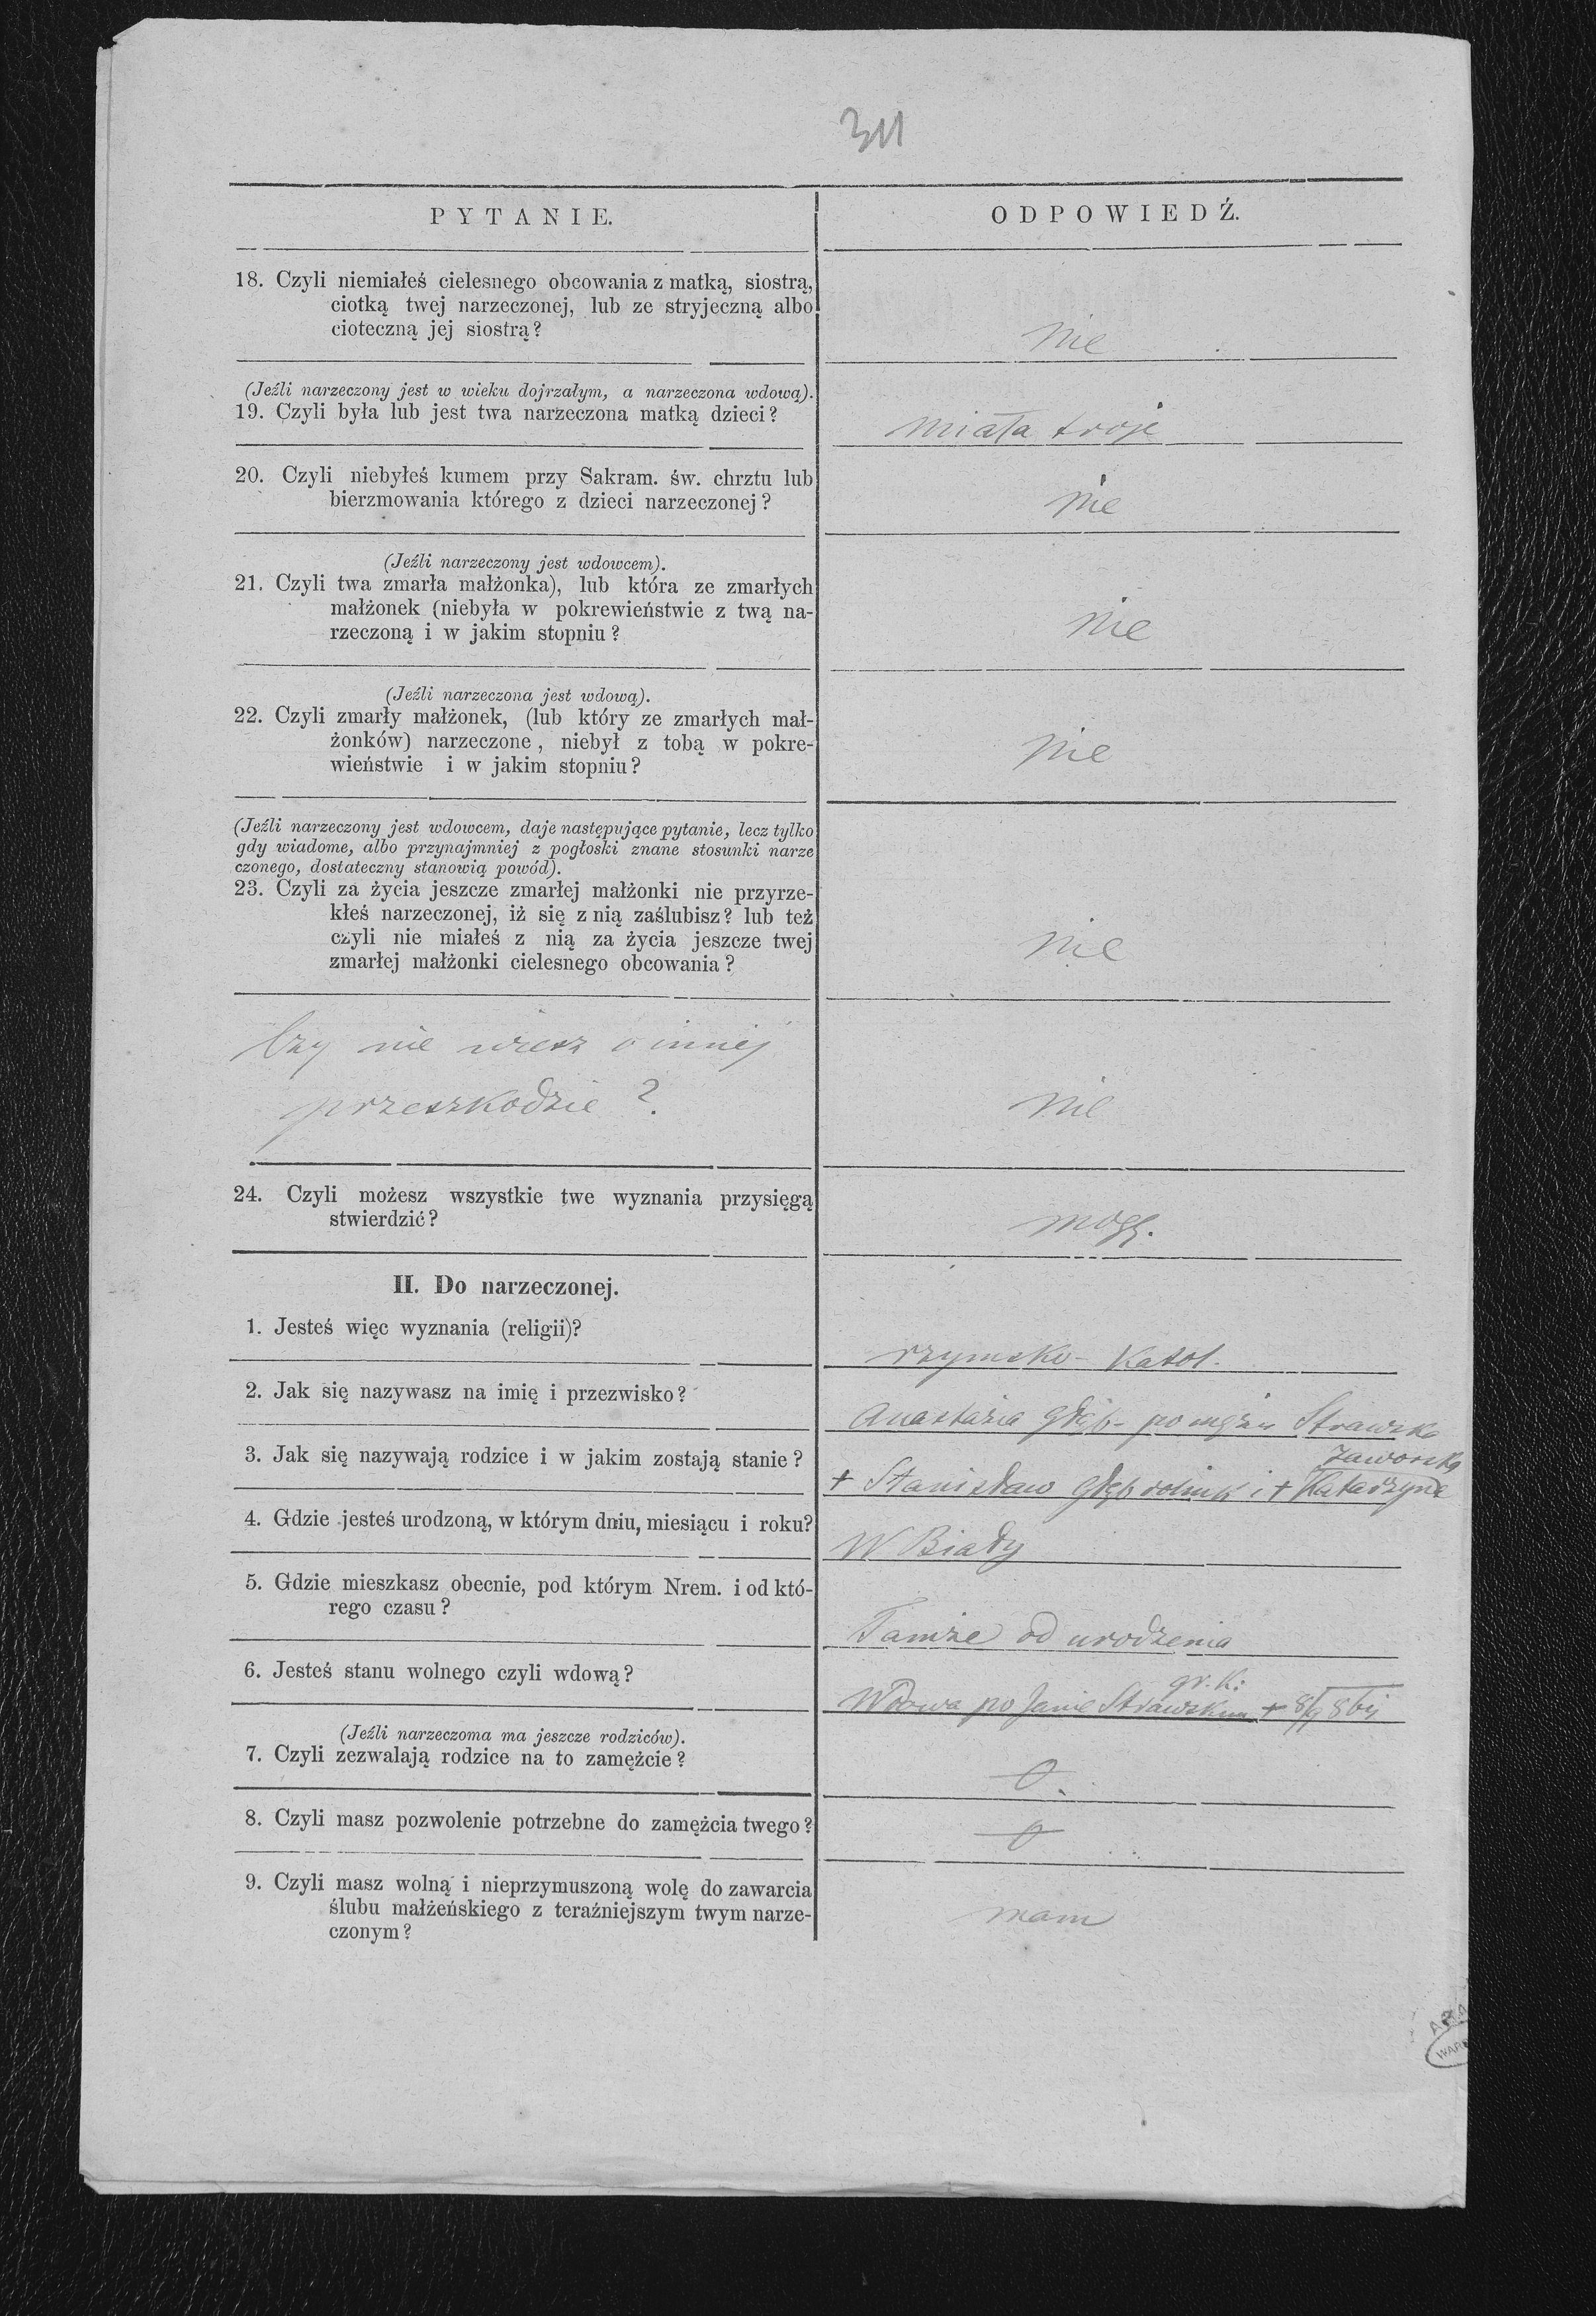 311
PYTANIE.
ODPOWIEDŹ.
18. Czyli niemiałeś cielesnego obcowania z matką, siostrą,
ciotką twej narzeczonej, lub ze stryjeczną albo
cioteczną jej siostrą?
nie
(Jeźli narzeczony jest w wieku dojrzałym, a narzeczona wdową).
19. Czyli była lub jest twa narzeczona matką dzieci?
miała troje
20. Czyli niebyłeś kumem przy Sakram. św. chrztu lub
bierzmowania którego z dzieci narzeczonej?
nie
(Jeźli narzeczony jest wdowcem).
21. Czyli twa zmarła małżonka), lub która ze zmarłych
małżonek (niebyła w pokrewieństwie z twą na-
rzeczoną i w jakim stopniu?
nie
(Jeźli narzeczona jest wdową).
22. Czyli zmarły małżonek, (lub który ze zmarłych mał-
żonków) narzeczone, niebył z tobą w pokre-
wieństwie i w jakim stopniu?
nie
(Jeźli narzeczony jest wdowcem, daje następujące pytanie, lecz tylko
gdy wiadome, albo przynajmniej z pogłoski znane stosunki narze
czonego, dostateczny stanowią powód).
23. Czyli za życia jeszcze zmarłej małżonki nie przyrze-
kłeś narzeczonej, iż się z nią zaślubisz? lub też
czyli nie miałeś z nią za życia jeszcze twej
zmarłej małżonki cielesnego obcowania?
nie
Czy nie wiesz o innej
przeszkodzie?
nie
24. Czyli możesz wszystkie twe wyznania przysięgą
stwierdzić?
mogę.
II. Do narzeczonej.
1. Jesteś więc wyznania (religii)?
rzymsko-katol.
2. Jak się nazywasz na imię i przezwisko?
Anastazia Głąb- po mężu
3. Jak się nazywają rodzice i w jakim zostają stanie?
Jaworską
+ Stanisław Głąb rolnik i + Katarzyna
4. Gdzie jesteś urodzoną, w którym dniu, miesiącu i roku?
W Biały
5. Gdzie mieszkasz obecnie, pod którym Nrem. i od któ-
rego czasu?
Tamże od urodzenia
6. Jesteś stanu wolnego czyli wdową?
gr. k:
Wdowa po Janie +
(Jeźli narzeczoma ma jeszcze rodziców).
7. Czyli zezwalają rodzice na to zamężcie?
0
8. Czyli masz pozwolenie potrzebne do zamężcia twego?
0
9. Czyli masz wolną i nieprzymuszoną wolę do zawarcia
ślubu małżeńskiego z teraźniejszym twym narze-
czonym?
mam